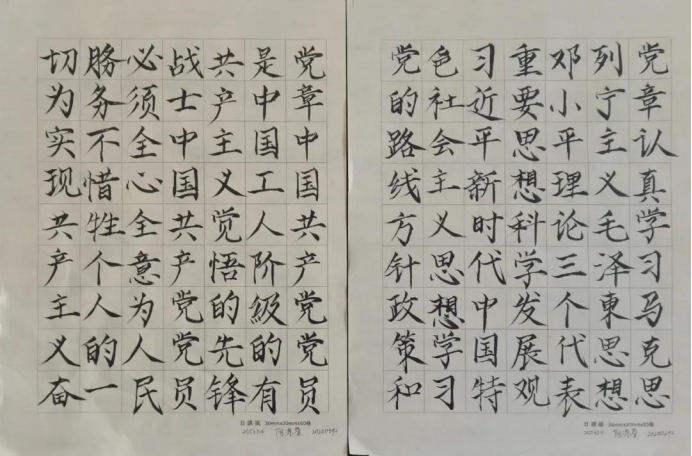 党章中国共产党党员
是中国工人阶級的有
共产主义觉悟的先锋
战士中国共产党党员
必须全心全意为人民
务不惜牲个人的一
切为实现共产主义奋
党章认真学习马克思
列宁主义毛泽東思想
邓小平理论三个代表
重要思想科学发展观
习近平新时代中国特
色社会主义思想学习
党的路线方针政策和